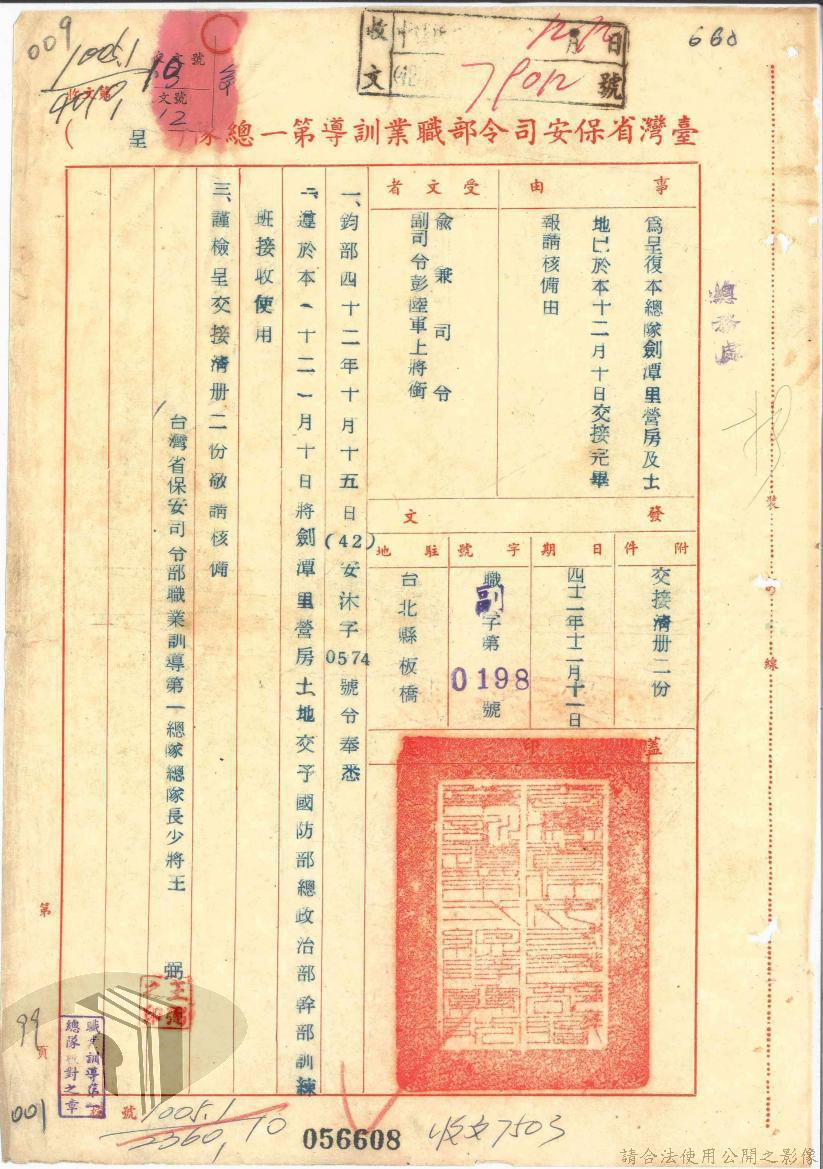 009
1005.1
收文
月 日
號
680
臺灣省保安司令部職業訓導第一總隊（呈）
事由
為呈復本總隊劍潭里營房及土
地已於本十二月十日交接完畢
報請核備由
受文者
俞兼司令
副司令彭陸軍上將銜
發文
附件
交接清册二份
日期
四十二年十二月十一日
字號
職副字第0198號
駐地
台北縣板橋
蓋印
一、鈞部四十二年十月十五日(42)安沐字0574號令奉悉
二、遵於本（十二）月十日將劍潭里營房土地交予國防部總政治部幹部訓練
班接收使用
三、謹檢呈交接清册二份敬請核備
台灣省保安司令部職業訓導第一總隊總隊長少將王 弼
王弼之印
總務處
裝
線
第
99
頁
001
職業訓導第一
總隊校對之章
號
1005.1
2360
10
056608
收文7503
請合法使用公開之影像